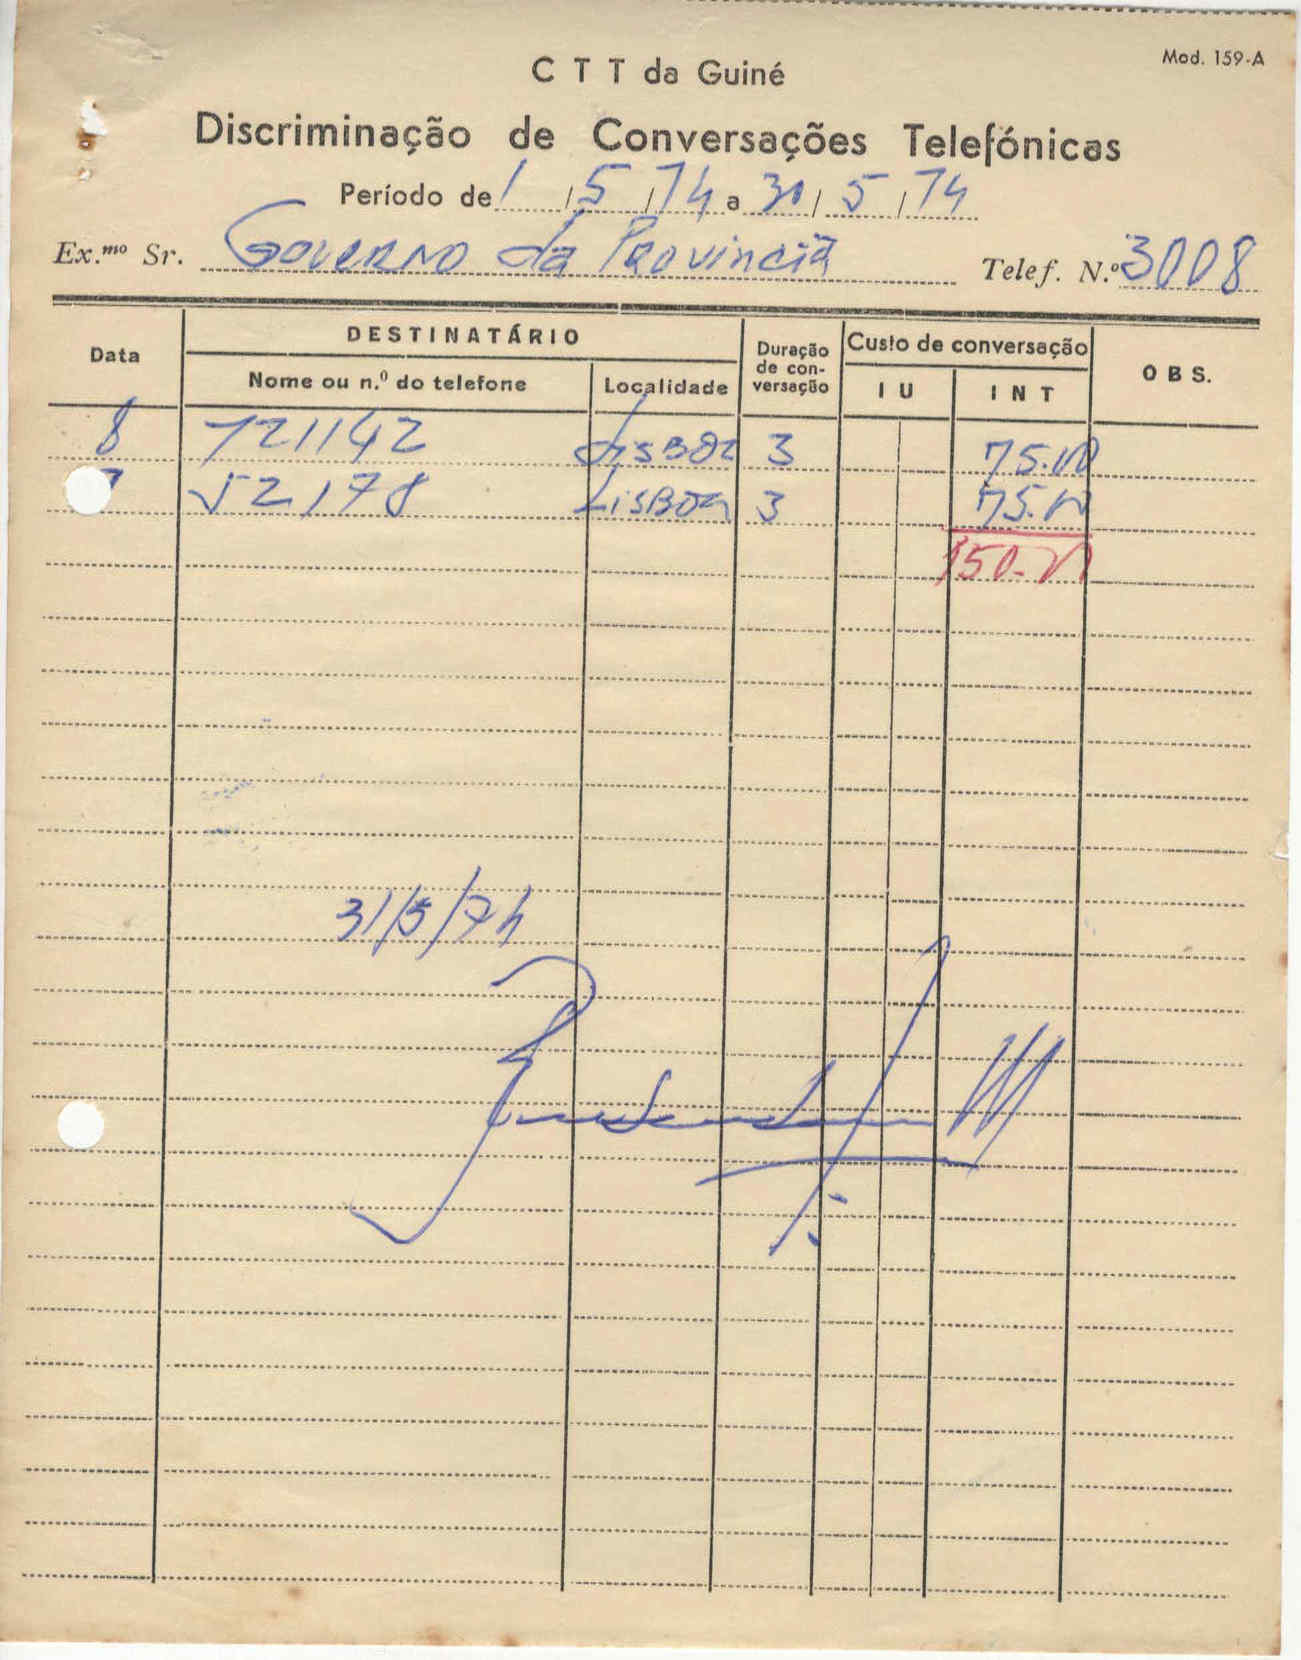 Mod. 159-A
C T T da Guiné
Discriminação de Conversações Telefónicas
Período de 1 / 5 / 74 a 30 / 5 / 74
Ex.mo Sr. Governo da Provincia Telef. N.º 3008
Data DESTINATÁRIO Duração de conversação Custo de conversação OBS.
Nome ou n.º do telefone Localidade I U I N T
8 721142 Lisboa 3 75.00
52178 Lisboa 3 75.00
150.00
31/5/74